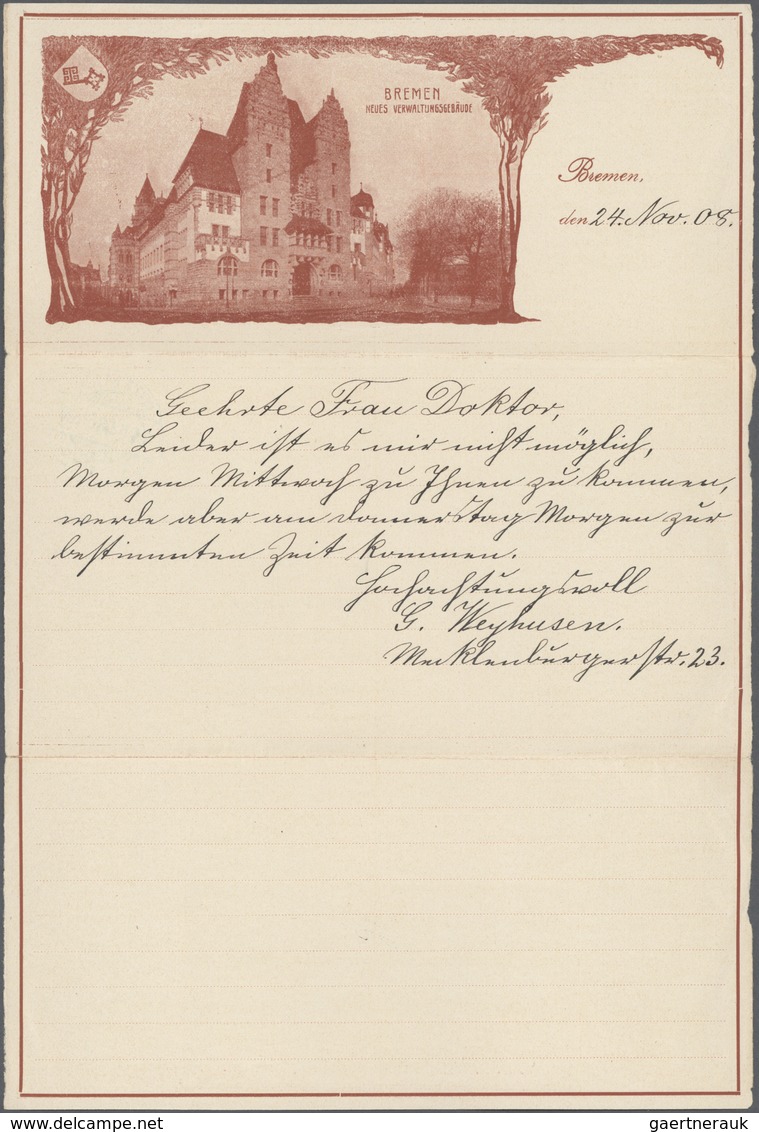 BREMEN
NEUES VERWALTUNGSGEBÄUDE
Bremen,
den 24. Nov. 08.
Geehrte Frau Doktor,
Leider ist es mir nicht möglich,
Morgen Mittwoch zu Ihnen zu kommen,
werde aber am Donnerstag Morgen zur
bestimmten Zeit kommen.
Hochachtungsvoll
G. Weyhusen.
Mecklenburgerstr. 23.
delcampe.net
gaertnerauk